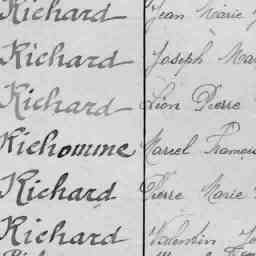 Richard Jean Marie
Richard Joseph Mar
Richard Léon Pierre
Richomme Marcel Françoi
Richard Pierre Marie
Richard Valentin Jo